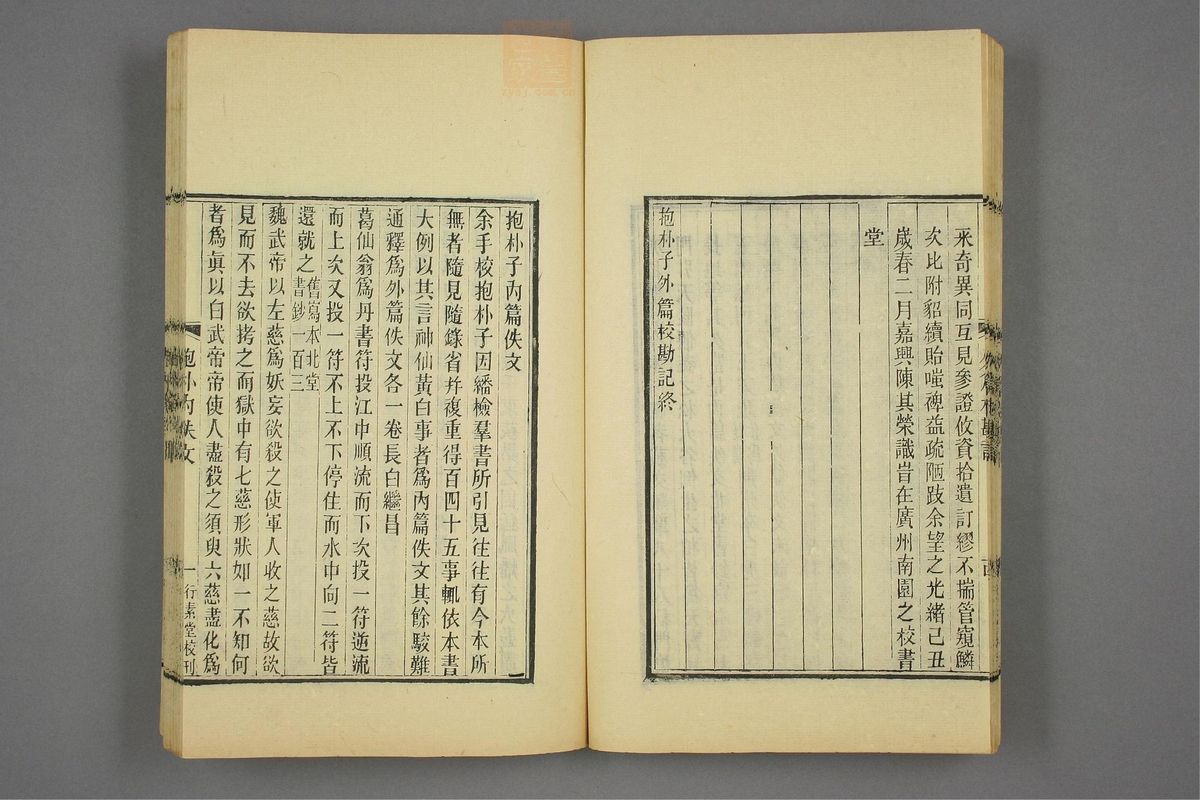 采奇異同互見參證攸資拾遺訂繆不揣管窺鱗
次比附貂續貽嗤裨益疏陋跂余望之光緒己丑
歲春二月嘉興陳其榮識旹在廣州南園之校書
堂
抱朴子外篇校勘記終
抱朴子內篇佚文
余手校抱朴子因繙檢羣書所引見往往有今本所
無者隨見隨錄省并複重得百四十五事輒依本書
大例以其言神仙黃白事者爲內篇佚文其餘駁難
通釋爲外篇佚文各一卷長白繼昌
葛仙翁爲丹書符投江中順流而下次投一符逆流
而上次又投一符不上不下停住而水中向二符皆
還就之舊寫本北堂書鈔一百三
魏武帝以左慈爲妖妄欲殺之使軍人收之慈故欲
見而不去欲拷之而獄中有七慈形狀如一不知何
者爲眞以白武帝帝使人盡殺之須臾六慈盡化爲
抱朴內佚文
一行素堂校刊